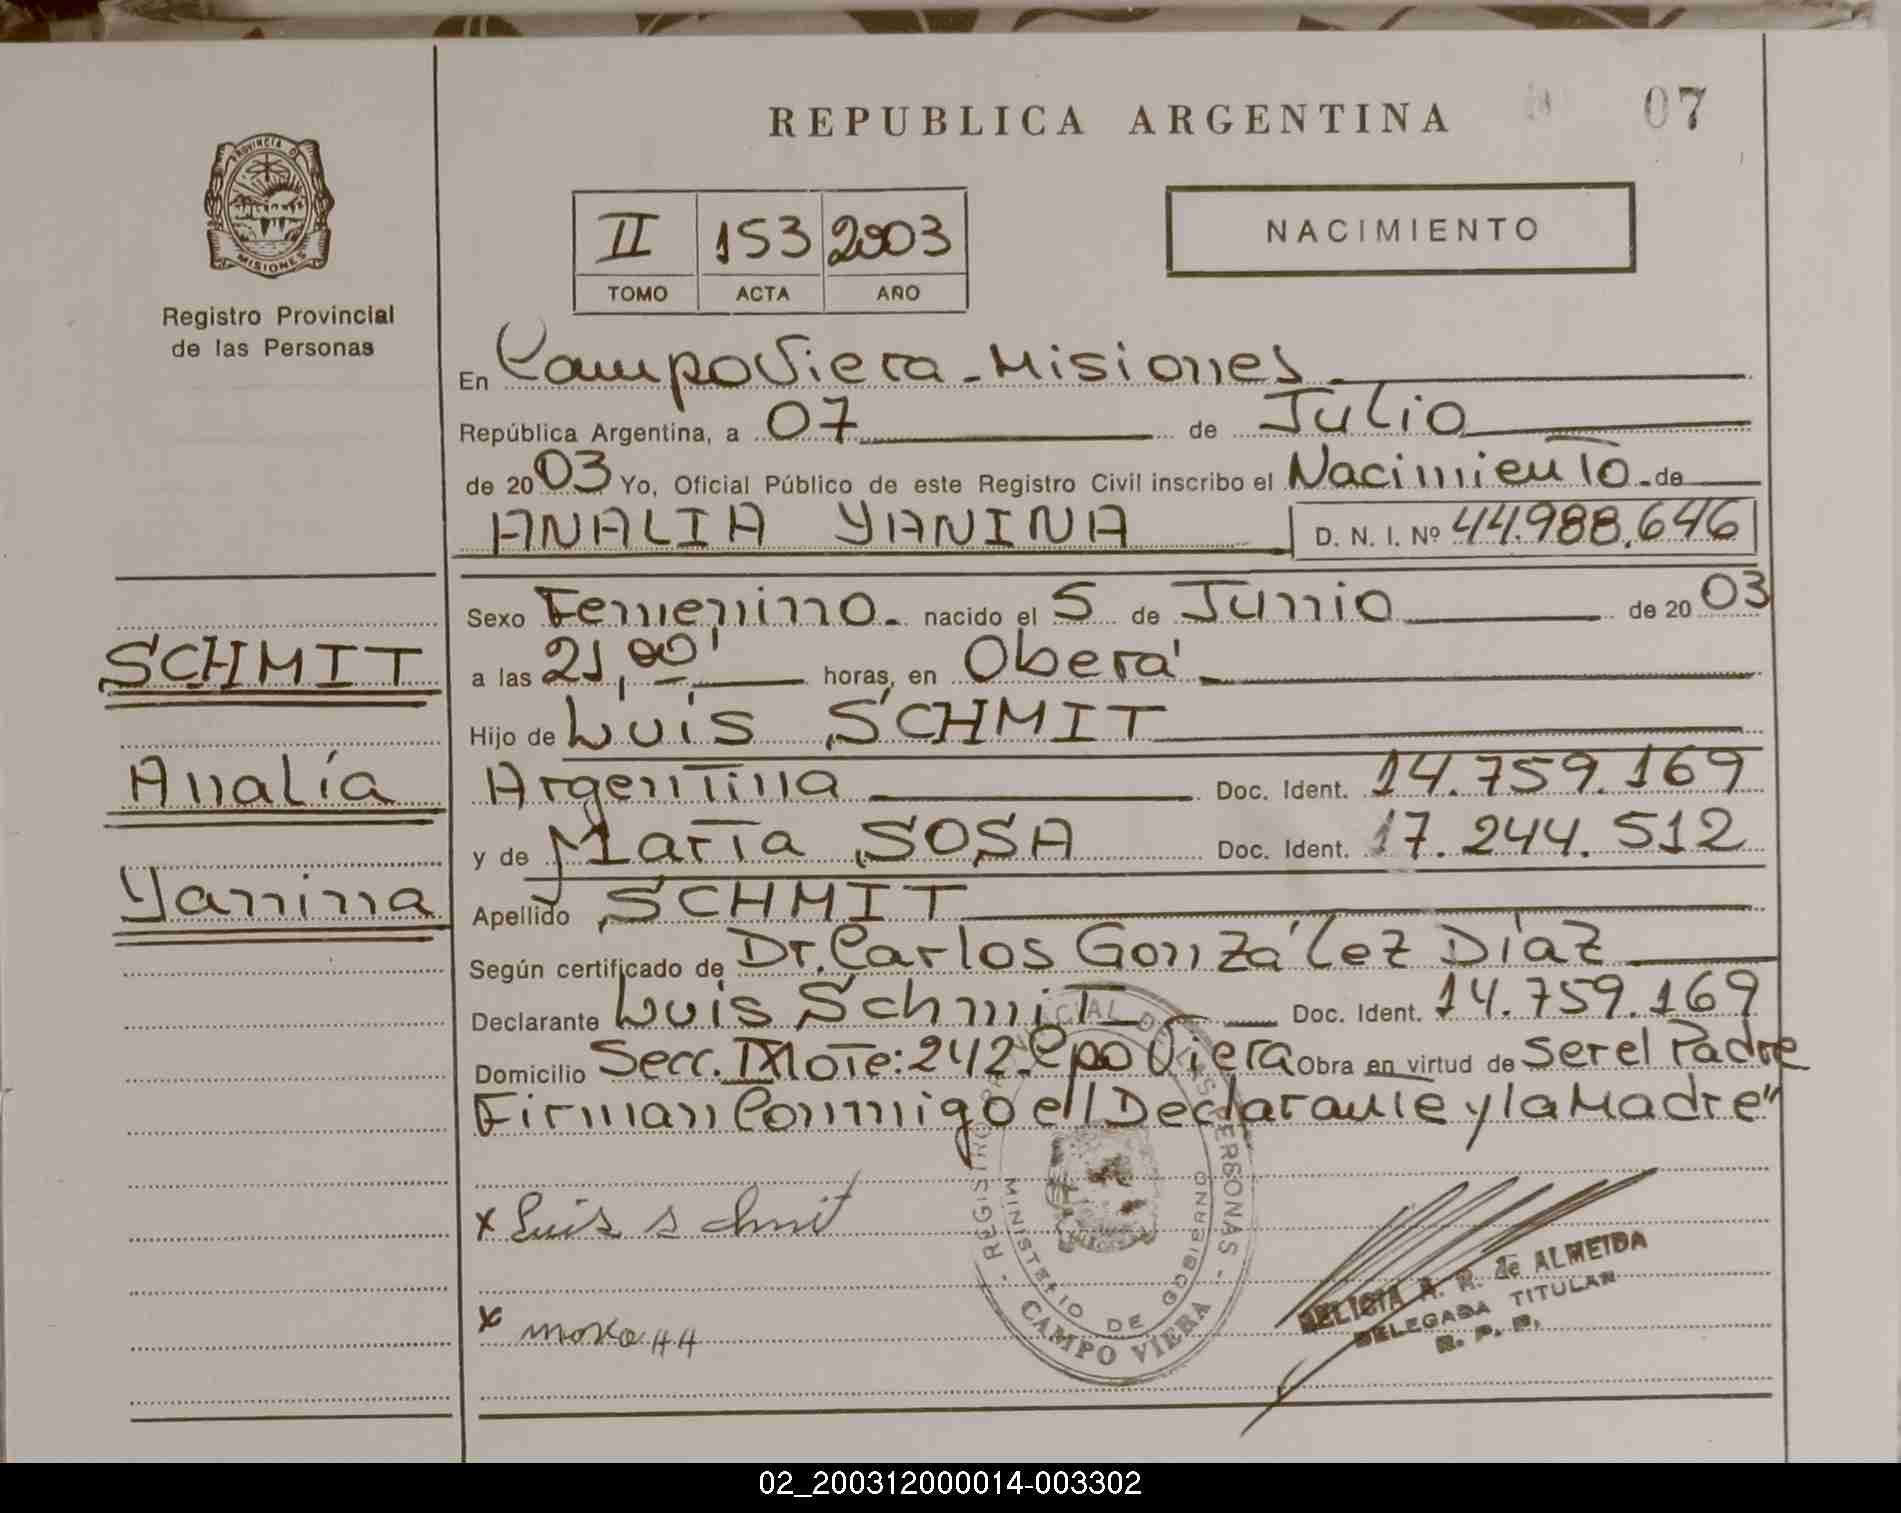 REPUBLICA ARGENTINA
07
PROVINCIA DE
MISIONES
Registro Provincial
de las Personas
II 153 2003
TOMO ACTA AÑO
NACIMIENTO
En Campo Viera - Misiones
República Argentina, a 07 de Julio
de 2003 Yo, Oficial Público de este Registro Civil inscribo el Nacimiento de
ANALIA YANINA D. N. I. Nº 44.988.646
Sexo Femenino. nacido el 5 de Junio de 2003
a las 21,00' horas, en Oberá
Hijo de Luis SCHMIT
Argentina Doc. Ident. 14.759.169
y de Marta SOSA Doc. Ident. 17.244.512
Apellido SCHMIT
Según certificado de Dr. Carlos González Díaz
Declarante Luis Schmit Doc. Ident. 14.759.169
Domicilio Secc. IX lote: 242 Cpo Viera Obra en virtud de ser el Padre
Firman Conmigo el Declarante y la Madre"
SCHMIT
Analía
Yanina
x Luis schmit
x
REGISTRO PROVINCIAL DE LAS PERSONAS
MINISTERIO DE GOBIERNO
CAMPO VIERA
DELICIA A. R. de ALMEIDA
DELEGADA TITULAR
R. P. P.
02_200312000014-003302